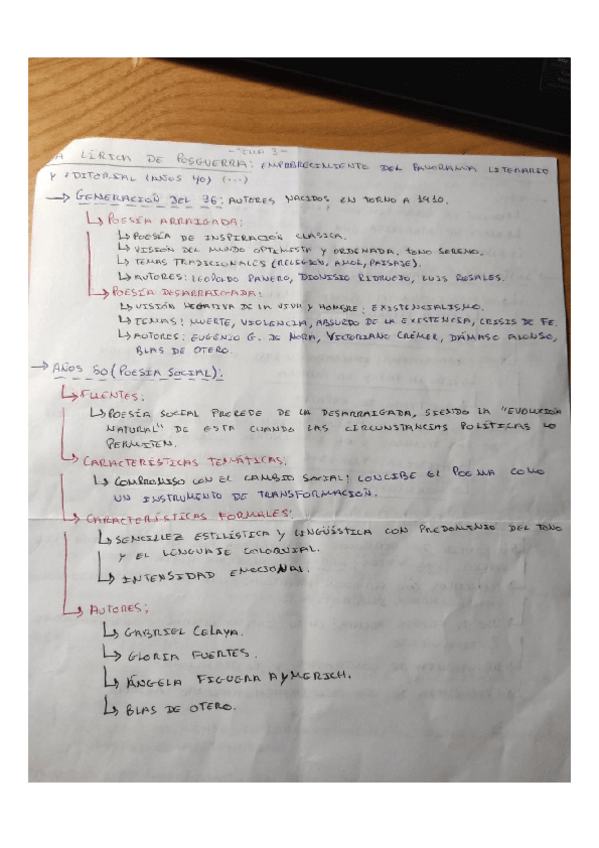 - TEMA 3 -
LA LÍRICA DE POSGUERRA: EMPOBRECIMIENTO DEL PANORAMA LITERARIO
Y EDITORIAL (AÑOS 40) (...)
→ GENERACIÓN DEL 36: AUTORES NACIDOS EN TORNO A 1910.
↳ POESÍA ARRAIGADA:
↳ POESÍA DE INSPIRACIÓN CLÁSICA.
↳ VISIÓN DEL MUNDO OPTIMISTA Y ORDENADA, TONO SERENO.
↳ TEMAS TRADICIONALES (RELIGIÓN, AMOR, PAISAJE).
↳ AUTORES: LEOPOLDO PANERO, DIONISIO RIDRUEJO, LUIS ROSALES.
↳ POESÍA DESARRAIGADA:
↳ VISIÓN NEGATIVA DE LA VIDA Y HOMBRE: EXISTENCIALISMO.
↳ TEMAS: MUERTE, VIOLENCIA, ABSURDO DE LA EXISTENCIA, CRISIS DE FE.
↳ AUTORES: EUGENIO G. DE NORA, VICTORIANO CRÉMER, DÁMASO ALONSO,
BLAS DE OTERO.
→ AÑOS 50 (POESÍA SOCIAL):
↳ FUENTES:
↳ POESÍA SOCIAL PROCEDE DE LA DESARRAIGADA, SIENDO LA "EVOLUCIÓN
NATURAL" DE ESTA CUANDO LAS CIRCUNSTANCIAS POLÍTICAS LO
PERMITEN.
↳ CARACTERÍSTICAS TEMÁTICAS:
↳ COMPROMISO CON EL CAMBIO SOCIAL; CONCIBE EL POEMA COMO
UN INSTRUMENTO DE TRANSFORMACIÓN.
↳ CARACTERÍSTICAS FORMALES:
↳ SENCILLEZ ESTILÍSTICA Y LINGÜÍSTICA CON PREDOMINIO DEL TONO
Y EL LENGUAJE COLOQUIAL.
↳ INTENSIDAD EMOCIONAL.
↳ AUTORES:
↳ GABRIEL CELAYA.
↳ GLORIA FUERTES.
↳ ÁNGELA FIGUERA AYMERICH.
↳ BLAS DE OTERO.